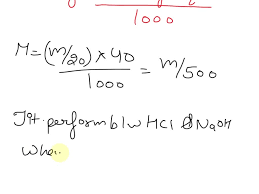 1000
M = (m/20) × 40 / 1000 = m/500
Tit. perform b/w HCl & NaOH
Whe